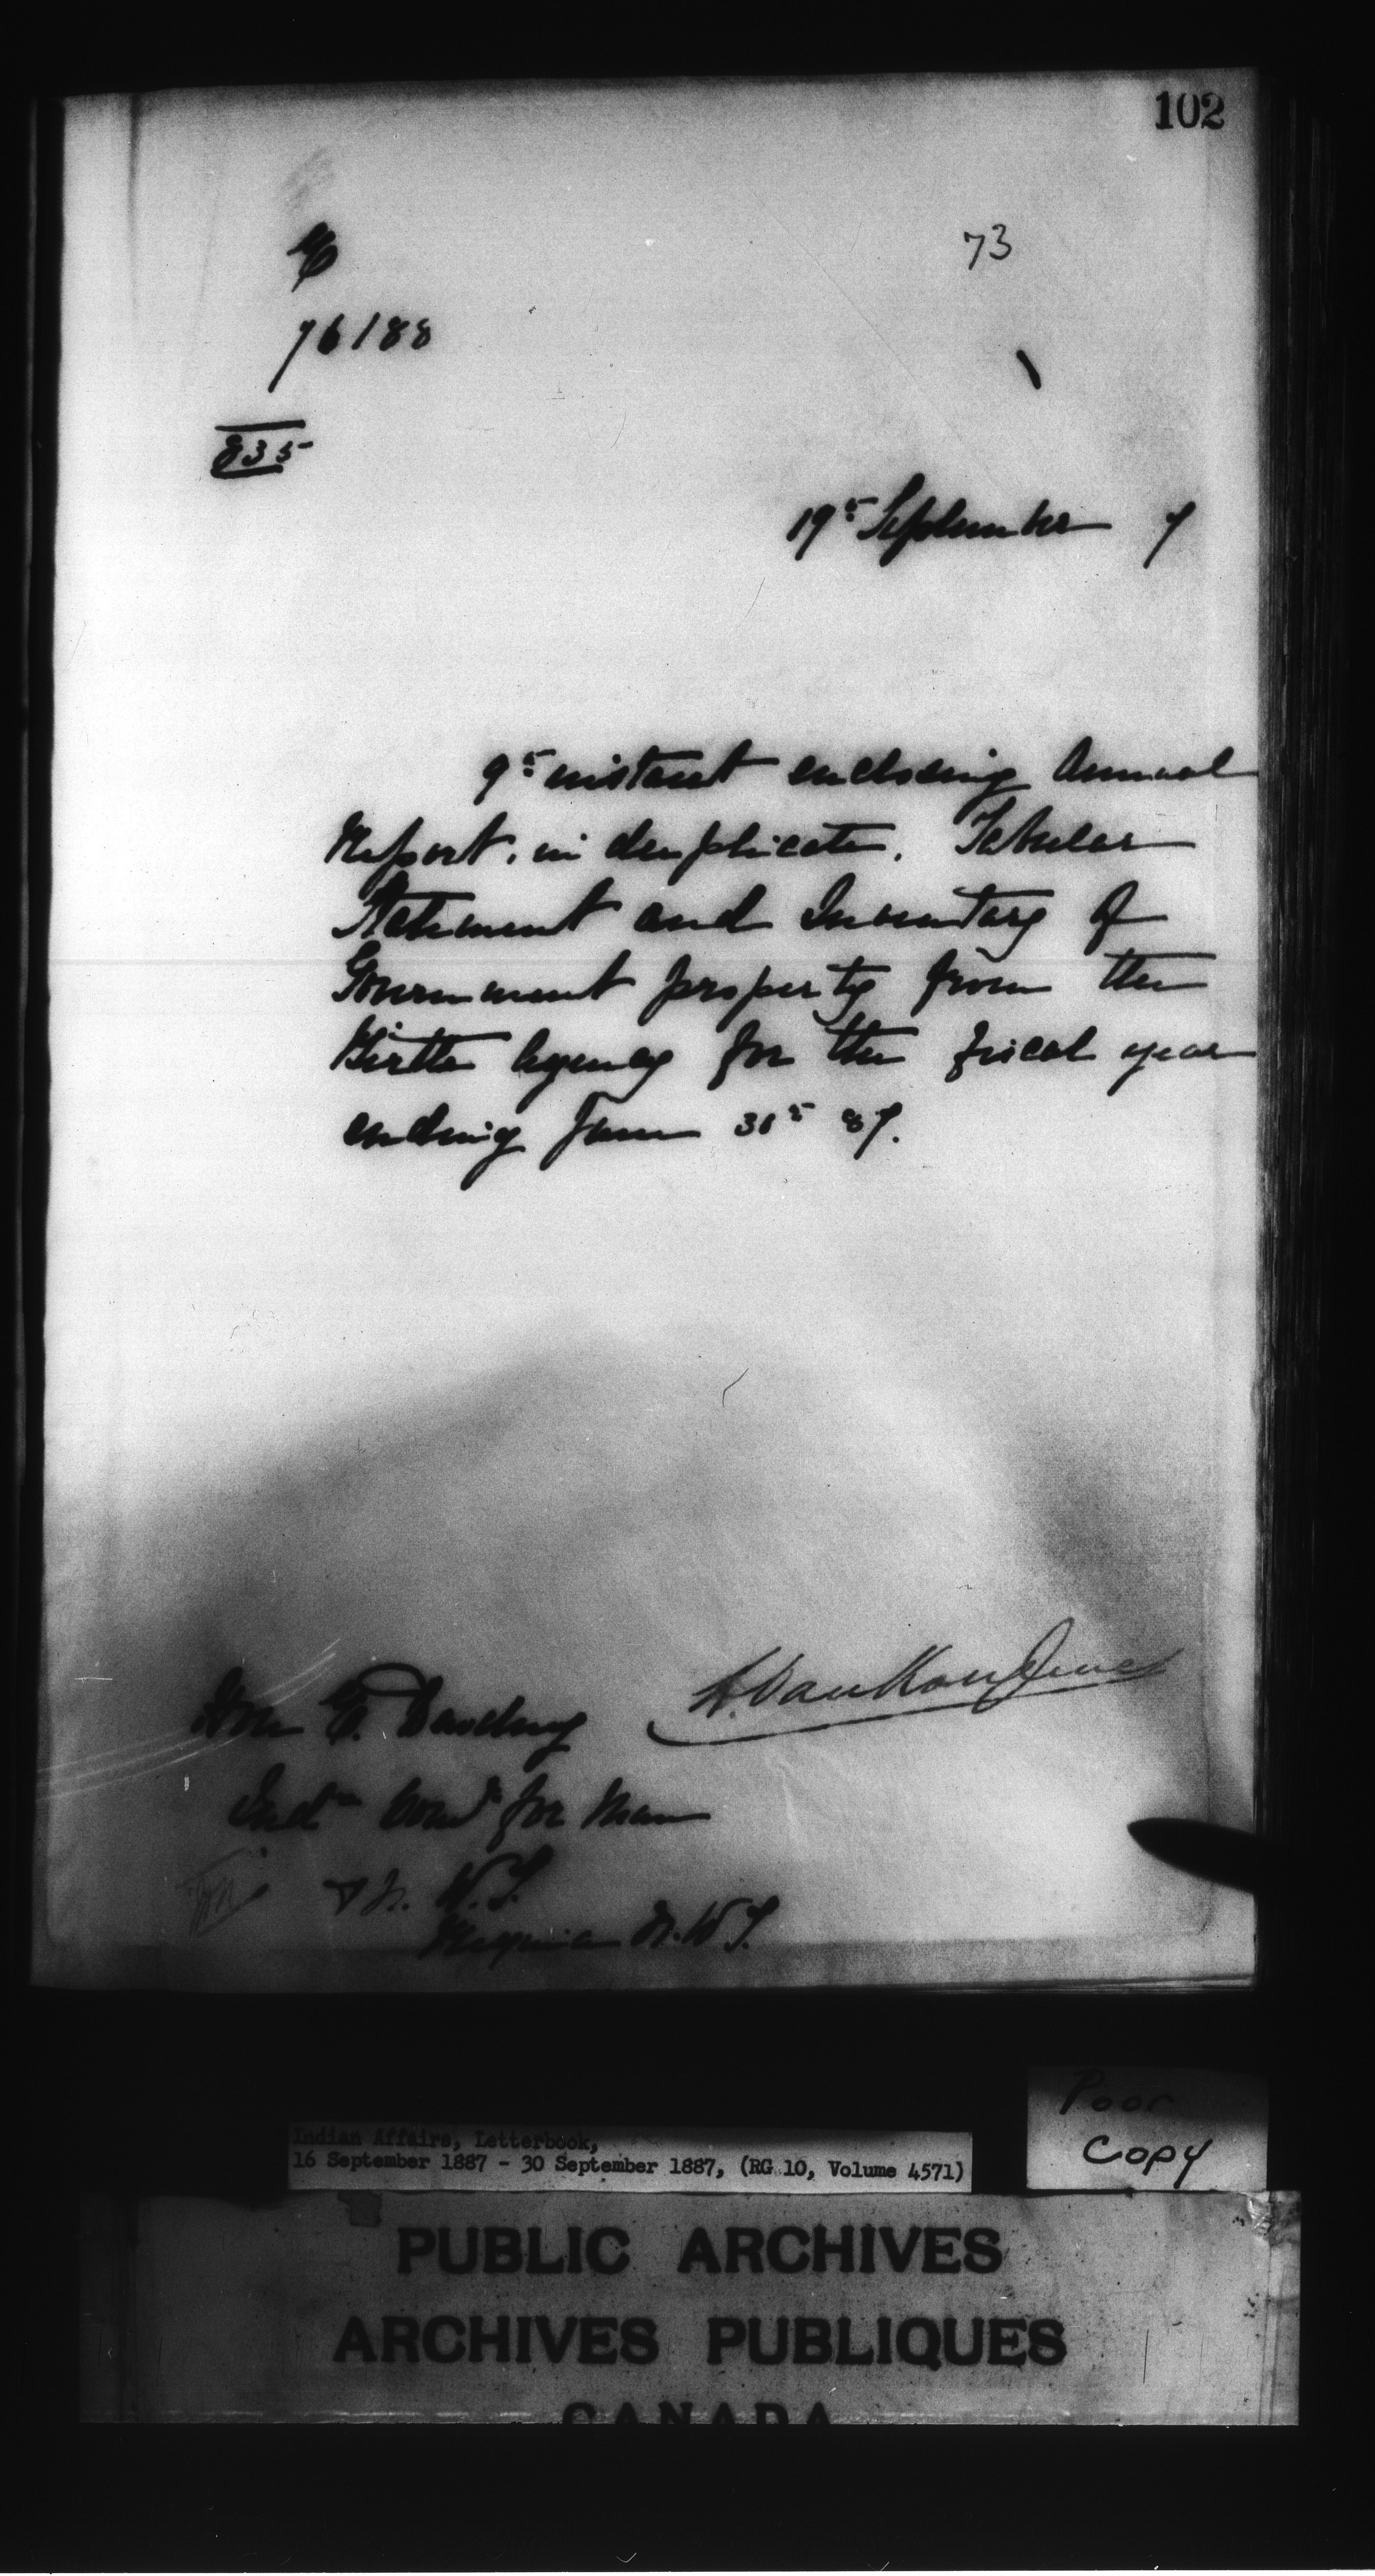 102
73
76188
835
19th September 7
9th instant enclosing Annual
Report, in duplicate, Tabular
Statement and Inventory of
Government property from the
Birtle Agency for the fiscal year
ending June 30th 87.
L. VanKoughnet
Hon E. Dewdney
Indn Comr for Man
& N. W. T.
Regina N. W. T.
Poor
Copy
Indian Affairs, Letterbook,
16 September 1887 - 30 September 1887, (RG 10, Volume 4571)
PUBLIC ARCHIVES
ARCHIVES PUBLIQUES
CANADA